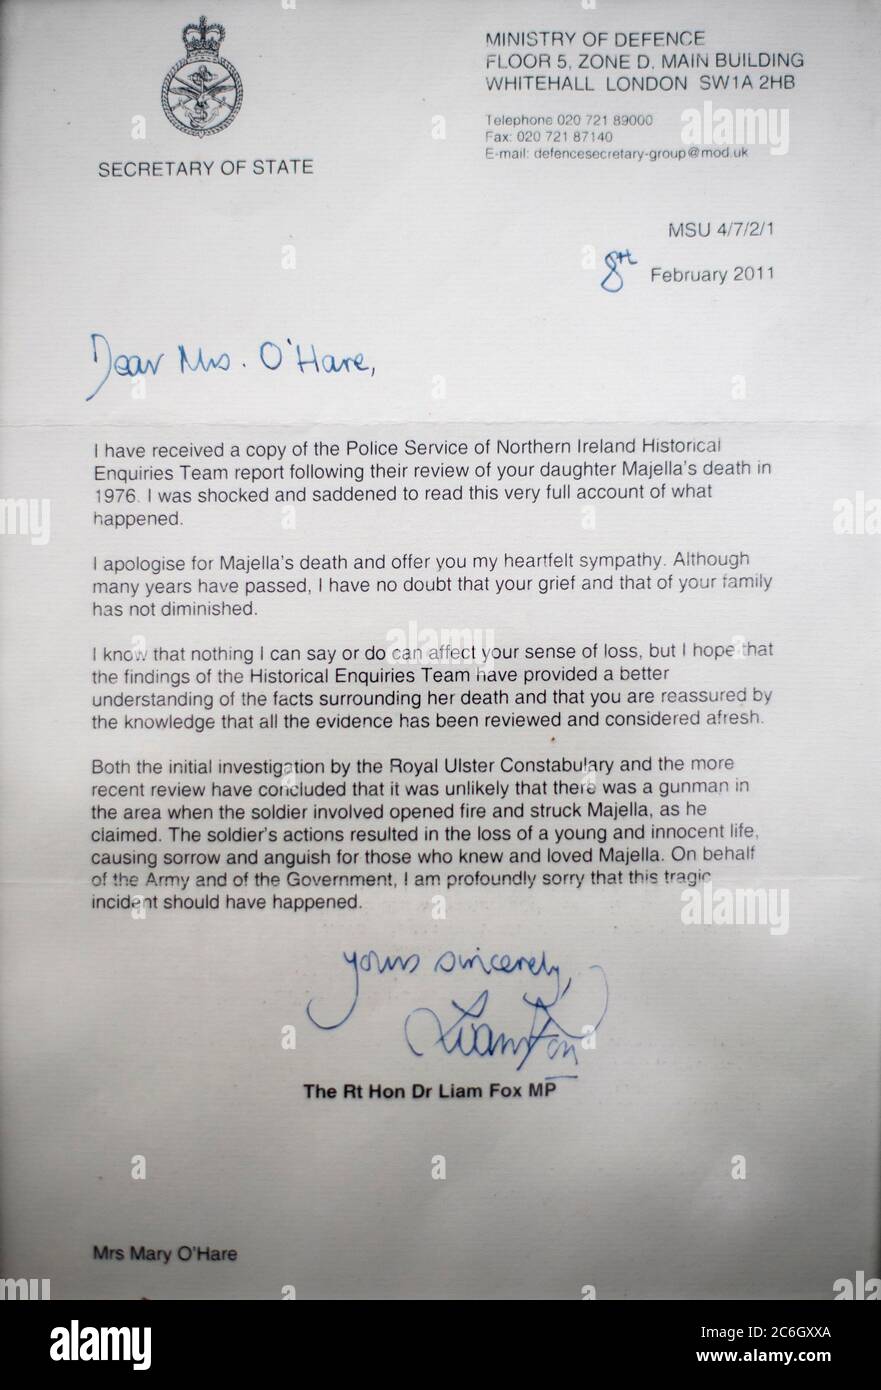 MINISTRY OF DEFENCE
FLOOR 5, ZONE D, MAIN BUILDING
WHITEHALL LONDON SW1A 2HB
Telephone 020 721 89000
Fax: 020 721 87140
E-mail: defencesecretary-group@mod.uk
SECRETARY OF STATE
MSU 4/7/2/1
8th February 2011
Dear Mrs. O'Hare,
I have received a copy of the Police Service of Northern Ireland Historical
Enquiries Team report following their review of your daughter Majella's death in
1976. I was shocked and saddened to read this very full account of what
happened.
I apologise for Majella's death and offer you my heartfelt sympathy. Although
many years have passed, I have no doubt that your grief and that of your family
has not diminished.
I know that nothing I can say or do can affect your sense of loss, but I hope that
the findings of the Historical Enquiries Team have provided a better
understanding of the facts surrounding her death and that you are reassured by
the knowledge that all the evidence has been reviewed and considered afresh.
Both the initial investigation by the Royal Ulster Constabulary and the more
recent review have concluded that it was unlikely that there was a gunman in
the area when the soldier involved opened fire and struck Majella, as he
claimed. The soldier's actions resulted in the loss of a young and innocent life,
causing sorrow and anguish for those who knew and loved Majella. On behalf
of the Army and of the Government, I am profoundly sorry that this tragic
incident should have happened.
Yours sincerely,
Liam Fox
The Rt Hon Dr Liam Fox MP
Mrs Mary O'Hare
alamy
Image ID: 2C6GXXA
www.alamy.com